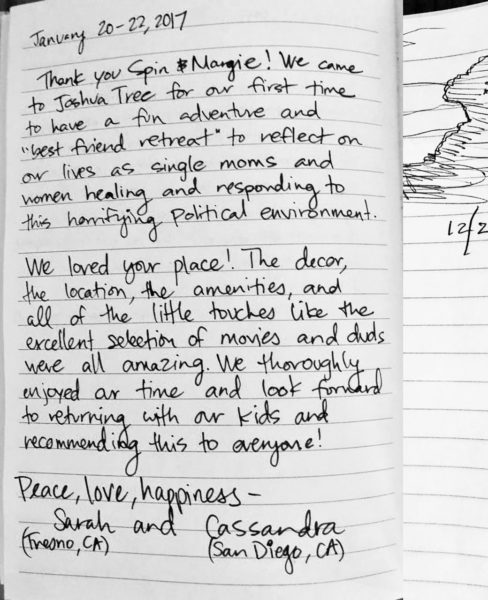 January 20-22, 2017
Thank you Spin & Margie! We came
to Joshua Tree for our first time
to have a fun adventure and
"best friend retreat" to reflect on
our lives as single moms and
women healing and responding to
this horrifying political environment.
We loved your place! The decor,
the location, the amenities, and
all of the little touches like the
excellent selection of movies and dvds
were all amazing. We thoroughly
enjoyed our time and look forward
to returning with our kids and
recommending this to everyone!
Peace, love, happiness -
Sarah and Cassandra
(Fresno, CA) (San Diego, CA)
12/2